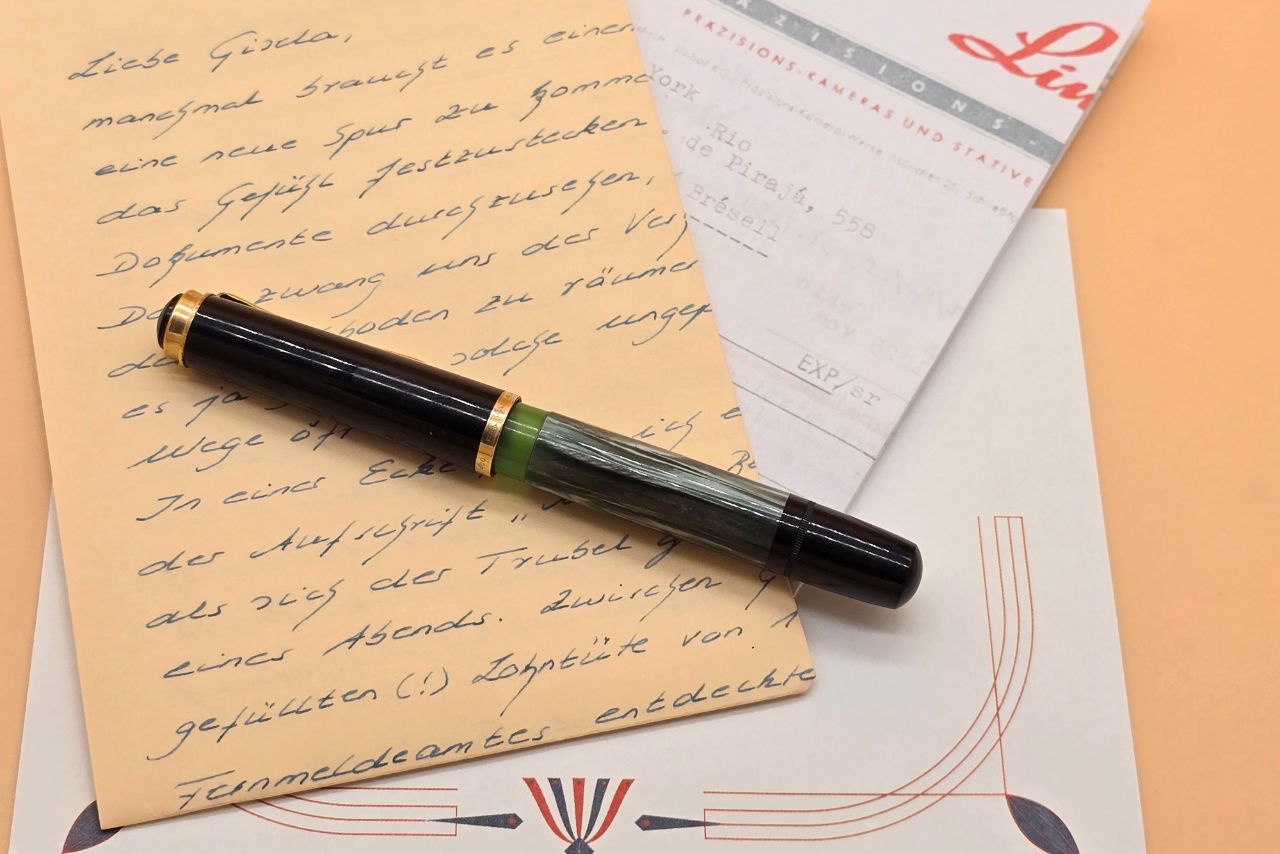 Liebe Gisela,
manchmal braucht es einen
eine neue Spur zu komme
das Gefühl festzustecken
Dokumente durchzusehen,
zwang uns der
boden zu räumen
solche
es ja
Wege
ich
In einer Ecke
der Aufschrift
als sich der Trubel
eines Abends. Zwischen
gefüllten (!) Lohntüte von 1
Fernmeldeamtes entdeckte
AZISIONS-
PRÄZISIONS-KAMERAS UND STATIVE
Lin
Linhof KG, Präzisions-Kamera-Werke, München 25,
York
Rio
de Pirajá, 558
Brésil
EXP/sr